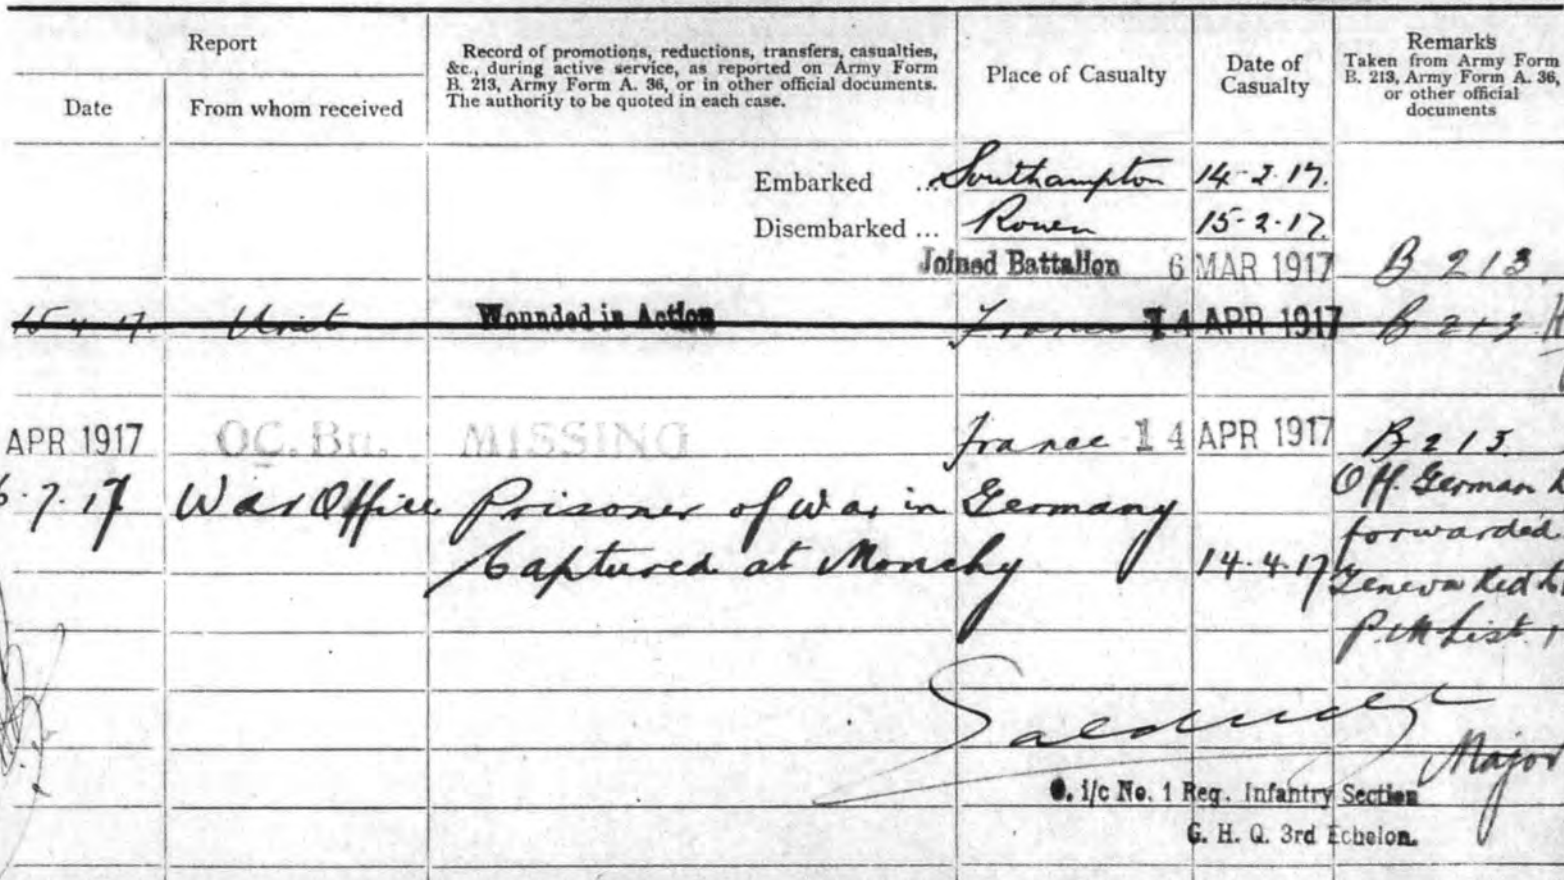 Report
Date
From whom received
Record of promotions, reductions, transfers, casualties,
&c., during active service, as reported on Army Form
B. 213, Army Form A. 36, or in other official documents.
The authority to be quoted in each case.
Place of Casualty
Date of
Casualty
Remarks
Taken from Army Form
B. 213, Army Form A. 36,
or other official
documents
Embarked ... Southampton 14-2-17.
Disembarked ... Rouen 15-2-17.
Joined Battalion 6 MAR 1917 B 213.
15-4-17. Unit Wounded in Action France 14 APR 1917 B 213
APR 1917 OC. Bn. MISSING France 14 APR 1917 B 213.
6.7.17 War Office Prisoner of War in Germany Off. German
forwarded
Captured at Monchy 14.4.17
Geneva Red
List
Major
i/c No. 1 Reg. Infantry Section
G. H. Q. 3rd Echelon.